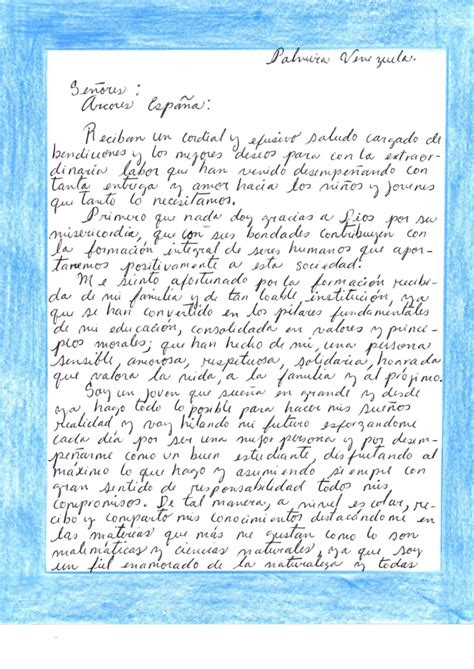 Palmira Venezuela.
Señores:
Arcores España:
Reciban un cordial y efusivo saludo cargado de
bendiciones y los mejores deseos para con la extraor-
dinaria labor que han venido desempeñando con
tanta entrega y amor hacia los niños y jovenes
que tanto lo necesitamos.
Primero que nada doy gracias a Dios por su
misericordia, que con sus bondades contribuyen con
la formación integral de seres humanos que apor-
taremos positivamente a esta sociedad.
Me siento afortunado por la formación recibi-
da de mi familia y de tan loable institución, ya
que se han convertido en los pilares fundamentales
de mi educación, consolidada en valores y princi-
pios morales; que han hecho de mi, una persona
sensible, amorosa, respetuosa, solidaria, honrada
que valora la vida, a la familia y al prójimo.
Soy un joven que sueña en grande y desde
ya, hago todo lo posible para hacer mis sueños
realidad y voy hilando mi futuro esforzandome
cada día por ser una mejor persona y por desem-
peñarme como un buen estudiante, disfrutando al
máximo lo que hago y asumiendo siempre con
gran sentido de responsabilidad todos mis
compromisos. De tal manera, a nivel escolar, re-
cibo y comparto mis conocimientos destacándome en
las materias que más me gustan como lo son
matemáticas y ciencias naturales, ya que soy
un fiel enamorado de la naturaleza y todas